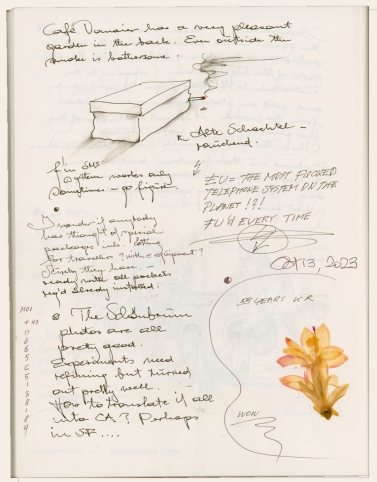 Café Domaier has a very pleasant
garden in the back. Even outside the
smoke is bothersome.
Alte Schachtel –
rauchend.
f'in SMS
system works only
sometimes – go figure.
EU = THE MOST FUCKED
TELEPHONE SYSTEM ON THE
PLANET !?!
FU'D EVERY TIME
I wonder if anybody
has thought of special
packages incl.
for travelers? with equipment?
Surely they have.
ready with all pockets
req'd already installed.
Oct 13, 2023
The Schönbrunn
photos are all
pretty good.
Experiments need
refining but turned
out pretty well.
How to translate it all
into CA? Perhaps
in SF....
+49
0
6
6
5
5
3
8
1
8
9
35 YEARS
WOW